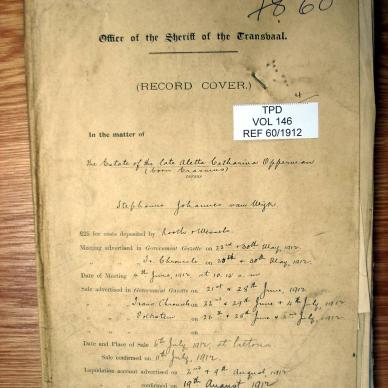 1860
Office of the Sheriff of the Transvaal.
(RECORD COVER.)
4
TPD
VOL 146
REF 60/1912
In the matter of
The Estate of the late Aletta Catharina Opperman
(born Erasmus)
versus
Stephanus Johannes van Wyk
£25 for costs deposited by Rooth & Wessels
Meeting advertised in Government Gazette on 22nd & 30th May, 1912
Do Chronicle on 30th May, 1912.
Date of Meeting 4th June, 1912, at 10.15 a.m
Sale advertised in Government Gazette on 21st & 28th June, 1912
" " Trans. Chronicle 22nd & 29th June & 4th July, 1912
" " Volkstem on 26th & 28th June & 2nd July, 1912
" " on
Date and Place of Sale 5th July, 1912, at Pretoria
Sale confirmed on 11th July, 1912
Liquidation account advertised on 2nd & 9th August 1912
" " confirmed on 19th August 1912